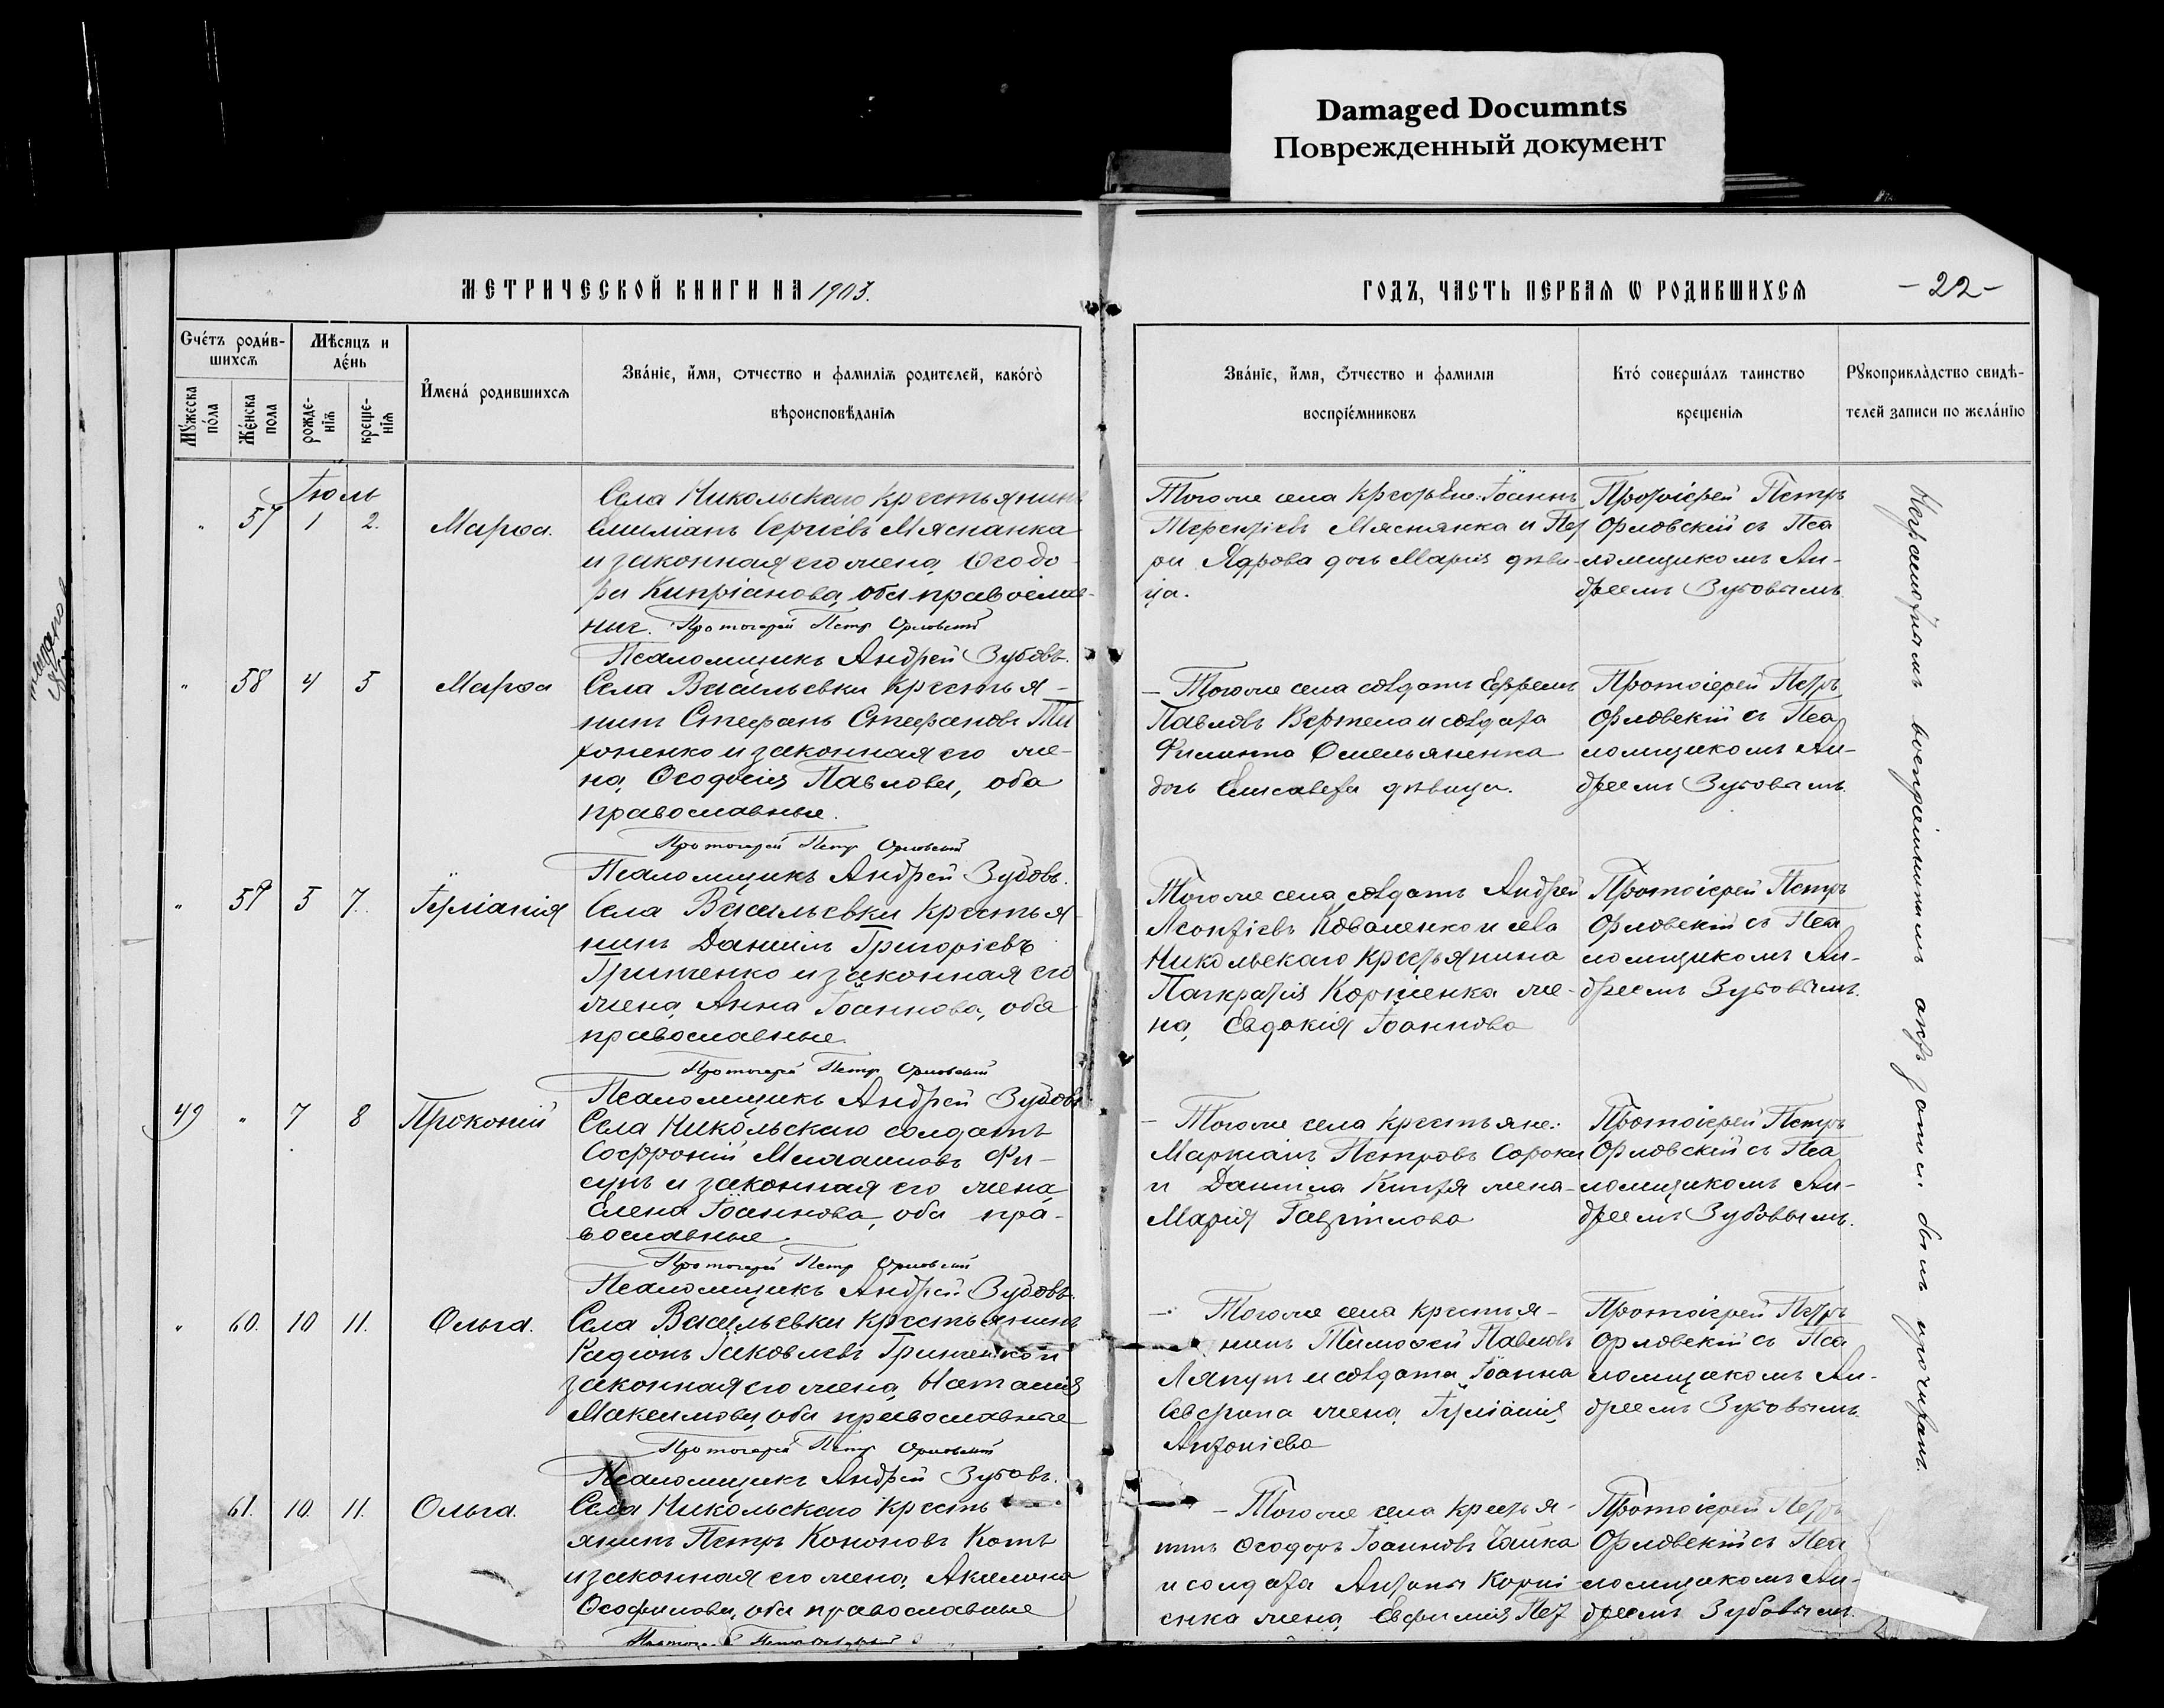 Damaged Documnts
Поврежденный документ
МЕТРИЧЕСКОЙ КНИГИ НА 1903.
ГОДЪ, ЧАСТЬ ПЕРВАЯ Ѡ РОДИВШИХСЯ
- 22 -
Счетъ родив-
шихся
Мѣсяцъ и
день
Мужеска пола
Женска пола
рожде-
нія
креще-
нія
Имена родившихся
Званіе, имя, отчество и фамилія родителей, какого
вѣроисповѣданія
Званіе, имя, отчество и фамилія
воспріемниковъ
Кто совершалъ таинство
крещенія
Рукоприкладство свидѣ-
телей записи по желанію
Іюль
" 57 1 2. Марѳа.
Села Никольскаго крестьянинъ
Сергіевъ Мяснянка
и законная его жена Ѳеодо-
ра Кипріанова, оба православ-
ные. Протоіерей Петръ Орловскій
Псаломщикъ Андрей Зубовъ.
Того же села Іоаннъ
Терентіевъ Мяснянка и Пет
ра Ядрова дочь Марія дѣви-
ца.
Протоіерей Петръ
Орловскій съ Пса
ломщикомъ Ан-
дреемъ Зубовымъ.
" 58 4 5 Марѳа
Села Васильевки крестья-
нинъ Стефанъ Стефановъ Ти
хоненко и законная его же-
на Ѳеодосія Павлова, оба
православные.
Протоіерей Петръ Орловскій
Псаломщикъ Андрей Зубовъ.
- Того же села солдатъ Ефремъ
Павловъ Вертела и солдата
Филиппа Омельяненка
дочь Елисавета дѣвица.
Протоіерей Петръ
Орловскій съ Пса
ломщикомъ Ан-
дреемъ Зубовымъ.
" 59 5 7. Іуліанія
Села Васильевки крестья-
нинъ Даніилъ Григоріевъ
Гринченко и законная его
жена Анна Іоаннова, оба
православные.
Протоіерей Петръ Орловскій
Псаломщикъ Андрей Зубовъ
Того же села солдатъ Андрей
Леонтіевъ Коваленко и села
Никольскаго крестьянина
Панкратія Корніенка же-
на Евдокія Іоаннова
Протоіерей Петръ
Орловскій съ Пса
ломщикомъ Ан-
дреемъ Зубовымъ.
49 " 7 8 Прокопій
Села Никольскаго солдатъ
Софроній Михаиловъ Фи-
сунъ и законная его жена
Елена Іоаннова, оба пра-
вославные.
Протоіерей Петръ Орловскій
Псаломщикъ Андрей Зубовъ.
- Того же села крестьяне:
Маркіанъ Петровъ Сорока
и Даніила жена
Марія Гавріилова
Протоіерей Петръ
Орловскій съ Пса
ломщикомъ Ан-
дреемъ Зубовымъ.
" 60. 10 11. Ольга.
Села Васильевки крестьянинъ
Родіонъ Іаковлевъ Гринченко и
законная его жена Наталія
Максимова, оба православные
Протоіерей Петръ Орловскій
Псаломщикъ Андрей Зубовъ.
- Того же села крестья-
нинъ Тимоѳей Павловъ
Ляпунъ и солдата Іоанна
Северина жена Іуліанія
Антоніева
Протоіерей Петръ
Орловскій съ Пса
ломщикомъ Ан-
дреемъ Зубовымъ.
61. 10. 11. Ольга.
Села Никольскаго кресть
янинъ Петръ Кононовъ Котъ
и законная его жена Акилина
Ѳеофилова, оба православные
- Того же села крестья-
нинъ Ѳеодоръ Іоанновъ Чайка
и солдата Антона Корні-
енка жена Евфимія Пет
Протоіерей Петръ
Орловскій съ Пса
ломщикомъ Ан-
дреемъ Зубовымъ.
Неграмотнымъ воспріемникамъ актъ записи былъ прочитанъ.